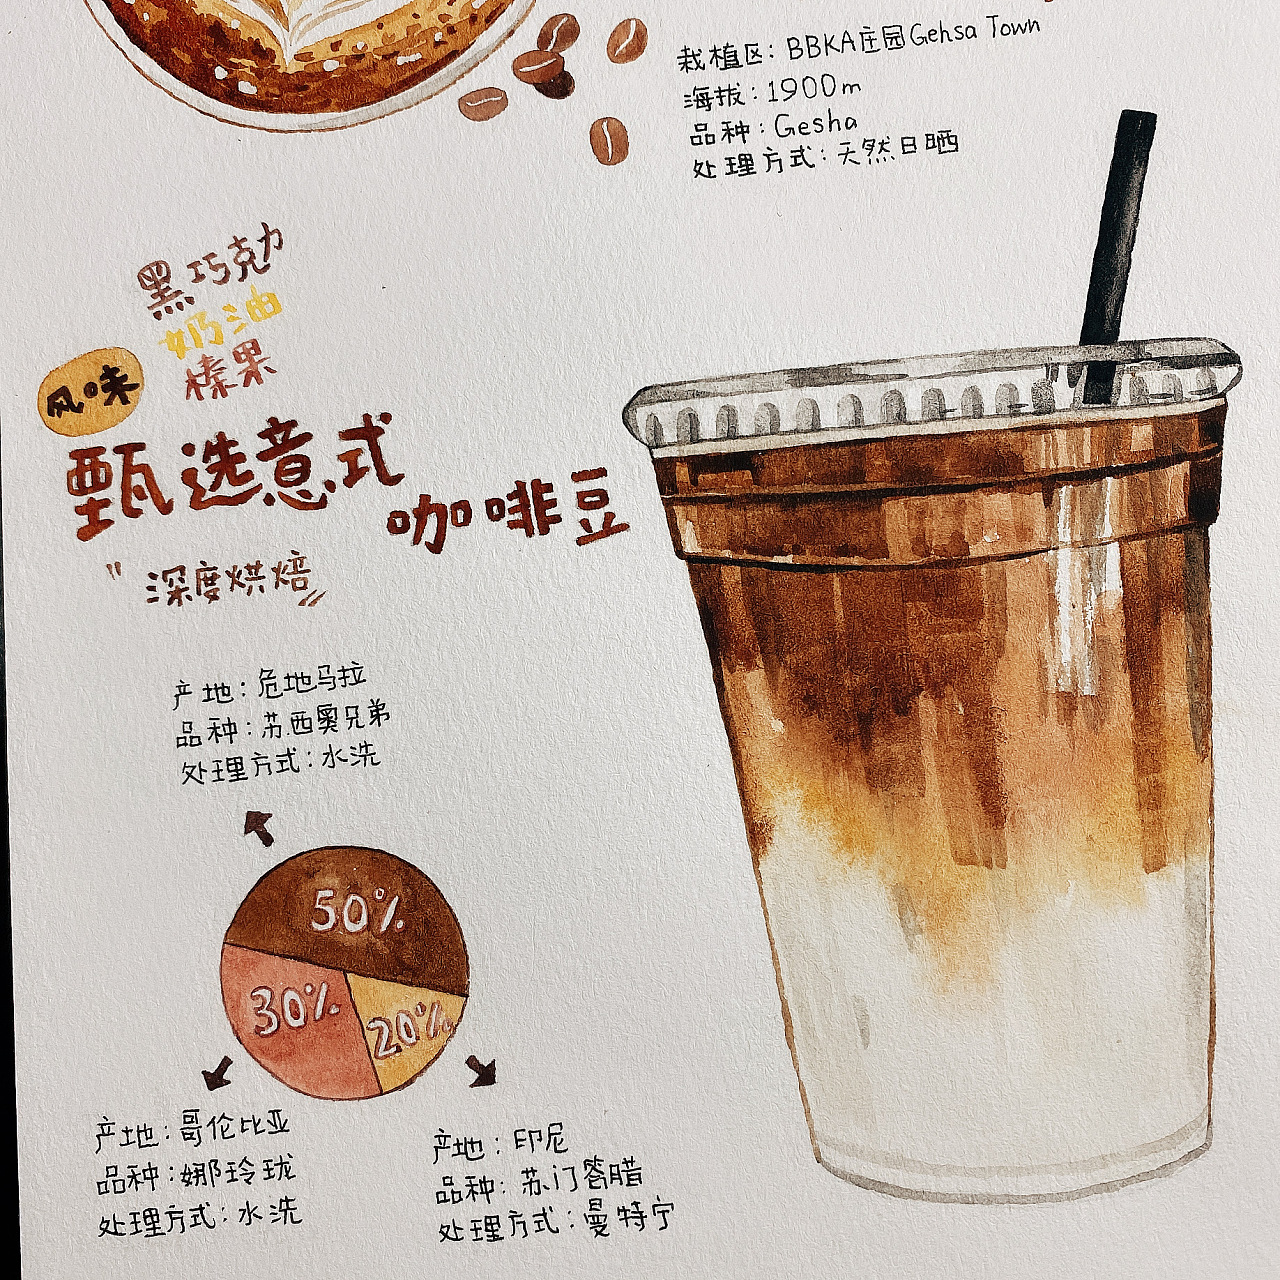 栽植区：BBKA庄园Gehsa Town
海拔：1900m
品种：Gesha
处理方式：天然日晒
黑巧克力
奶油
榛果
风味
甄选意式
咖啡豆
"深度烘焙"
产地：危地马拉
品种：苏西奥兄弟
处理方式：水洗
50%
30%
20%
产地：哥伦比亚
品种：娜玲珑
处理方式：水洗
产地：印尼
品种：苏门答腊
处理方式：曼特宁